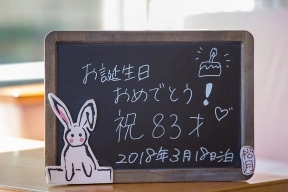 お誕生日
おめでとう!
祝83才
2018年3月18日泊
裕月